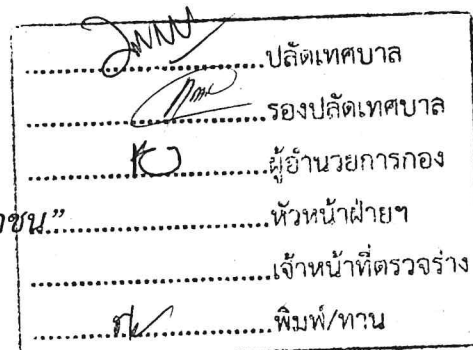 ....................ปลัดเทศบาล
....................รองปลัดเทศบาล
....................ผู้อำนวยการกอง
ชน”....................หัวหน้าฝ่ายฯ
....................เจ้าหน้าที่ตรวจร่าง
....................พิมพ์/ทาน